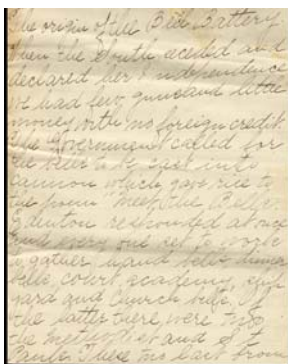 The origin of the Bell Battery.
When the South seceded and
declared her independence
we had few guns and little
money with no foreign credit.
The Government called for
the bells to be cast into
cannon which gave rise to
the poem "Melt the Bells".
Edenton responded at once
and every one set to work
to gather hand bells dinner
bells, court academy, ship
yard and Church bells, of
the latter there were two
the methodist and St
Pauls. These